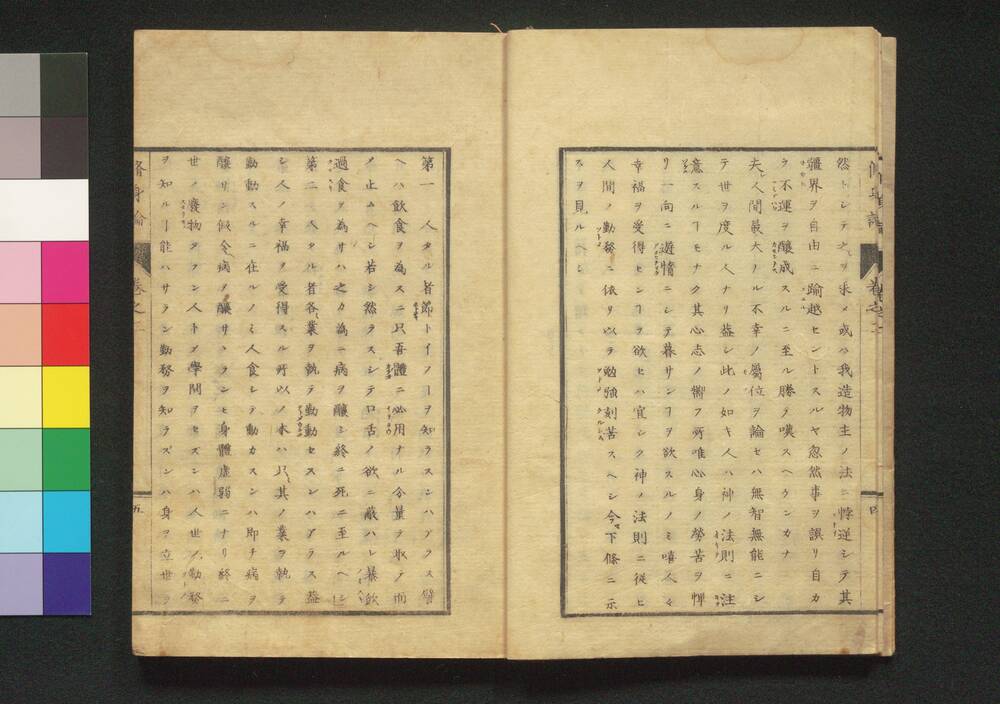 然トシテ之ヲ求メ或ハ我造物主ノ法ニ悖逆シテ其
疆界ヲ自由ニ踰越セントスルヤ忽然事ヲ誤リ自カ
ラ不運ヲ醸成スルニ至ル勝テ嘆スヘケンカナ
夫人間最大ノ不幸ノ屬位ヲ論セハ無智無能ニシ
テ世ヲ度ル人ナリ益シ此ノ如キ人ハ神ノ法則ニ注
意スルヿモナク其心志ノ嚮フ所唯心身ノ勞苦ヲ憚
リ一向ニ遊惰ニシテ暮サンヿヲ欲スルノミ嘻人々
幸福ヲ受得センヿヲ欲セハ宜シク神ノ法則ニ従ヒ
人間ノ勤務ニ依リ以テ勉強刻苦スヘシ今下條ニ示
スヲ見ルヘシ
第一 人タル者節トイフヿヲ知ラスンハアラス譬
ヘハ飲食ヲ為スニ只吾體ニ必用ナル分量ヲ取テ而
ノ止ムヘシ若シ然ラスシテ口舌ノ欲ニ蔽ハレ暴飲
過食ヲ為サハ之カ為ニ病ヲ醸シ終ニ死ニ至ルヘシ
第二 人タル者各業ヲ執テ勤動セスンハアラス益
シ人ノ幸福ヲ受得スル所以ノ本ハ只其ノ業ヲ執テ
勤動スルニ在ルノミ人食シテ動カスンハ即チ病ヲ
醸サン假令病ヲ醸サヽランモ身體虚弱ニナリ終ニ
世ノ廢物タラン人トメ學問ヲセズンハ人世ノ勤務
ヲ知ルヿ能ハサラン勤務ヲ知ラズンハ身ヲ立世ヲ
脩身論 巻之二
四
五